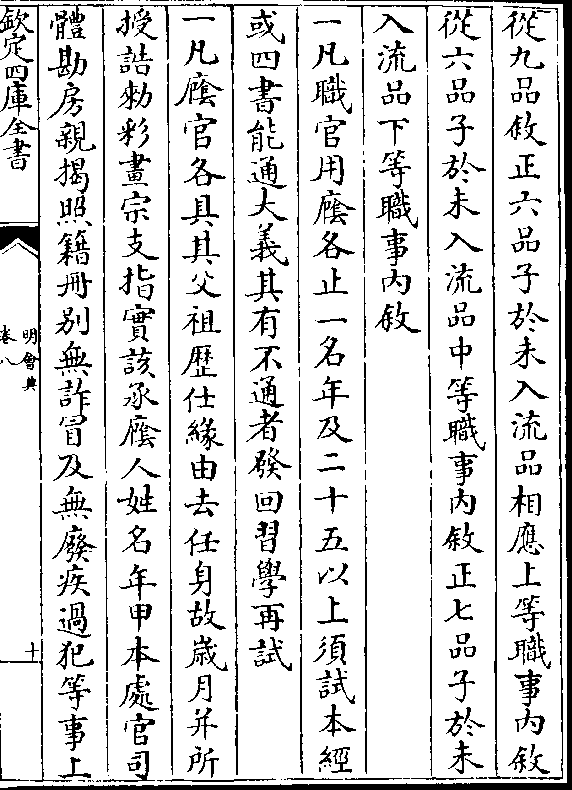 從九品敘正六品子於未入流品相應上等職事內敘
從六品子於未入流品中等職事內敘正七品子於未
入流品下等職事內敘
一凡職官用廕各止一名年及二十五以上須試本經
或四書能通大義其有不通者發回習學再試
一凡廕官各具其父祖歷仕緣由去任身故歲月并所
授誥勑彩畫宗支指實該承廕人姓名年甲本處官司
體勘房親揭照籍冊別無詐冒及無廢疾過犯等事上
欽定四庫全書
明會典
卷八
十